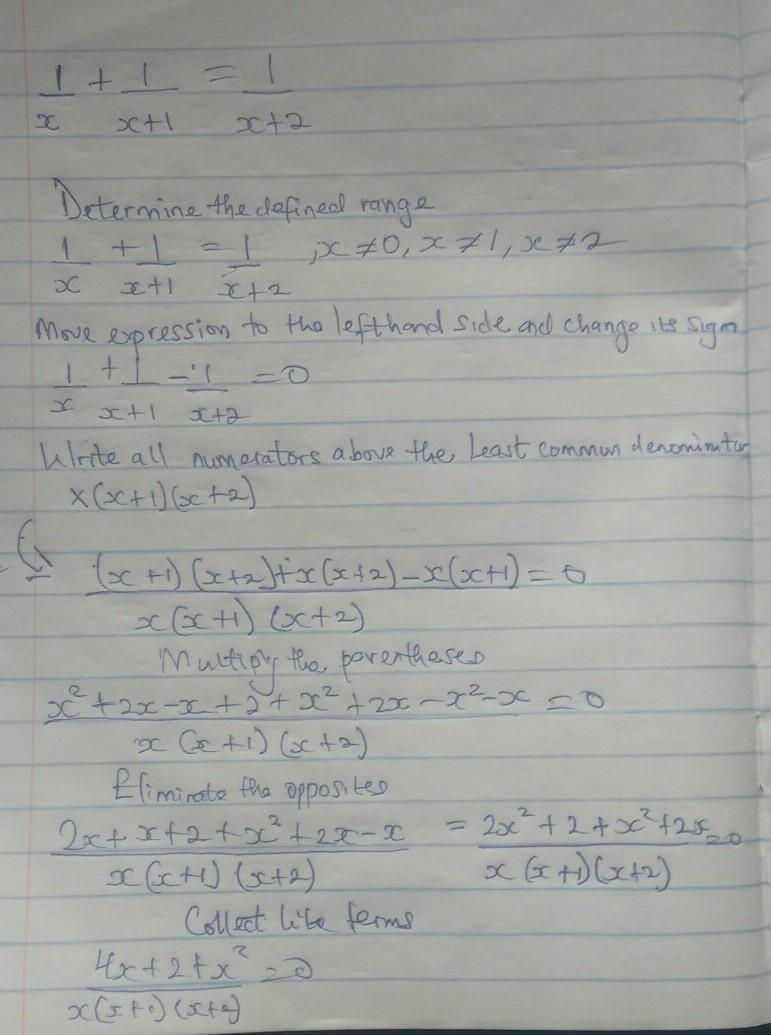 1/x + 1/x+1 = 1/x+2
Determine the defined range
1/x + 1/x+1 = 1/x+2 , x ≠ 0, x ≠ 1, x ≠ 2
Move expression to the lefthand side and change its sign
1/x + 1/x+1 - 1/x+2 = 0
Write all numerators above the least common denominator
x(x+1)(x+2)
(x+1)(x+2)+x(x+2)-x(x+1) = 0
x(x+1)(x+2)
Multiply the parentheses
x² + 2x - x + 2 + x² + 2x - x² - x = 0
x(x+1)(x+2)
Eliminate the opposites
2x + x + 2 + x² + 2x - x = 2x² + 2 + x² + 2x = 0
x(x+1)(x+2) x(x+1)(x+2)
Collect like terms
4x + 2 + x² = 0
x(x+1)(x+2)